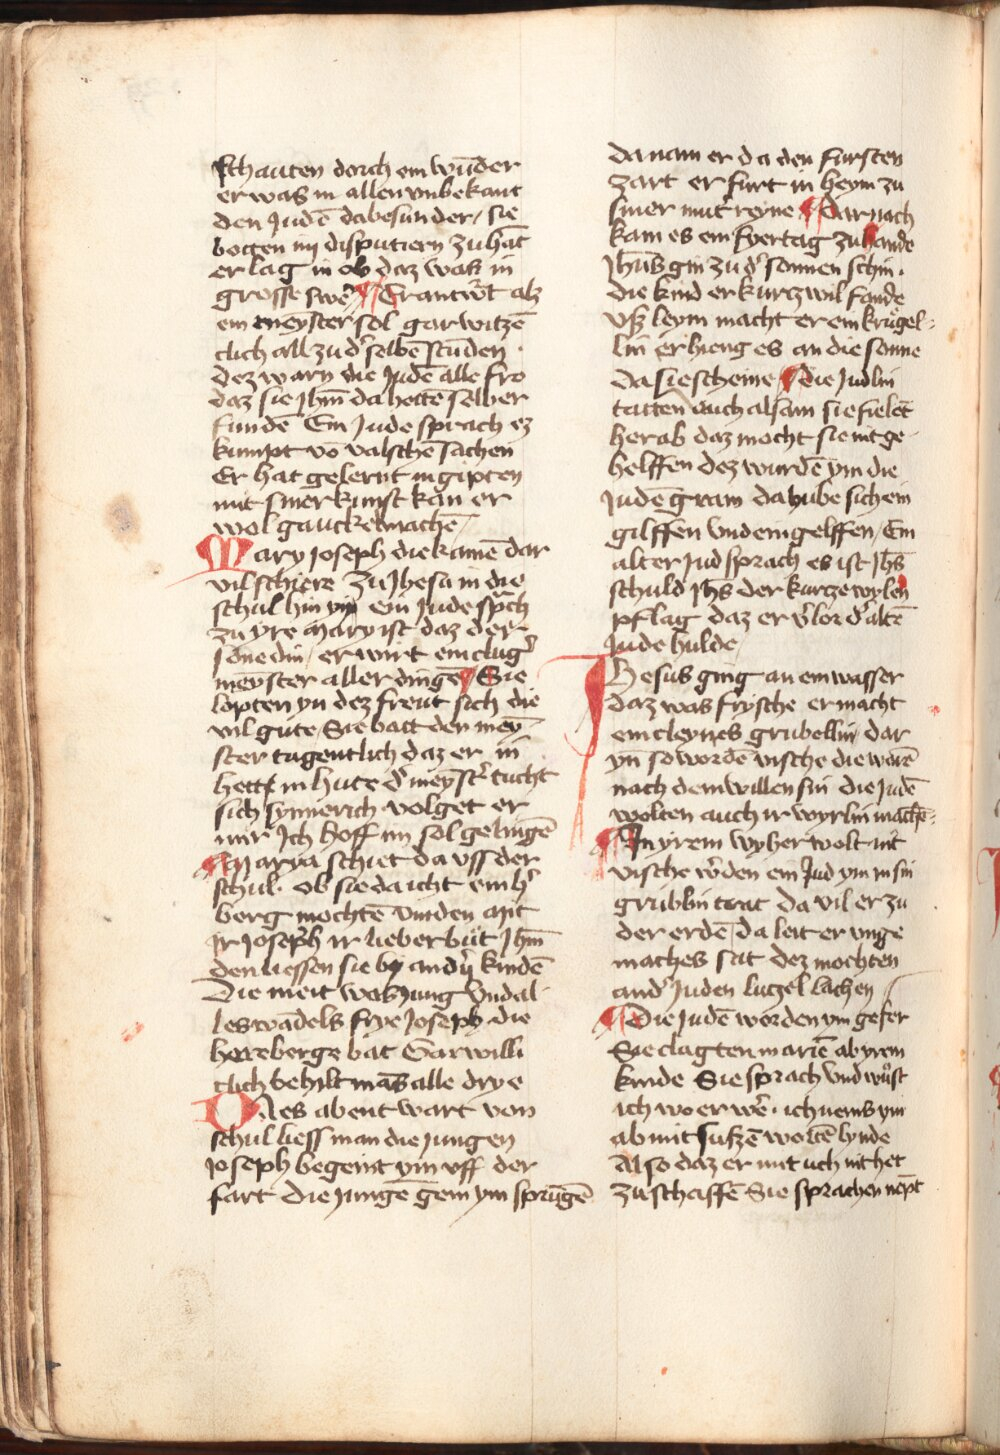 schauten dorch ein wūder
er was in allen vnbekant
den Judē dabesunder / sie
botten im disputiern zu hāt
er lag in ob daz wak in
grosse swer̄ ¶ Er antwⁱt alz
ein meyster sol gar witzē
clich all zu dˢ selbē stūden ·
dez warn die Judē alle fro
daz sie Jhm̄ da hettē selber
fundē Ein Jude sprach ez
kumpt vō valschē sachen
Er hat gelernt in gipten
mit siner kunst kan er
wol gauckel machē /
Mary joseph die kamē dar
vil schiere zu Jhesu in die
schul hin yin ein Jude spᵃch
zu yre Mary ist daz der
sone din / er wirt ein clugˢ
meyster aller dingē ¶ Sie
lopten yn dez freut sich die
vil gute / Sie batt den mey
ster tugentlich daz er in
hette in hute dˢ meystˢ tucht
sich synnerich volget er
mir Ich hoff im sol gelingē
¶ Marya schiet da vss der
schul · ob sie da icht ein hˢ
berg mochtē vinden mit
ir Joseph ir lieber but Jhm̄
den liessen sie by andˢn kindē
Die meit was Jung vnd al
les wādels frye Joseph die
hereberge bat Gar willi
clich behilt mās alle drye
Des abent wart von
schul liess man die jungen
joseph begeint ym vff der
fart die jungē gein ym sprūgē
da nam er da den fursten
zart er furt in heym zu
siner mutˢ reyne ¶ Dar nach
kam es ein fyertag zu hande
Jhūs gin zu dˢ sonnen schin ·
die kind er kurczwil fande
vsz leym macht er ein krugel-
lin er hieng es an die sonne
da sie scheine ¶ die Judlin
tatten auch alsam sie fielēt
herab daz mocht sie nit ge-
helffen dez wurdē ym die
Judē gram da hube sich ein
gilffen vnd ein gelffen / Ein
alter Jud sprach es ist Jhs̄
schuld Jhs̄ der kurcze wylen
pflag daz er vˢlor dˢ altē
Jude hulde /
Jhesus ging an ein wasser
daz was frysche er macht
ein cleynes grubellin / dar
yn̄ so wordē vische die warē
nach dem willen sin die Judē
wolten auch ir wyrlin machē-
¶ In yrem wyher wolt nit
vische wˢden ein Jud ym in sin
grublin trat da viel er zu
der erdē / da leit er vnge
maches sat dez mochten
andˢ Juden luczel lachen /
¶ Die Judē worden ym gefer
Sie clagten mariē ab yrem
kinde Sie sprach vnd wust
ich wo er wē · ich nems ym
ab mit susze wortē lynde
Also daz er mit uch nit het
zu schaffē Sie sprachen nēpt